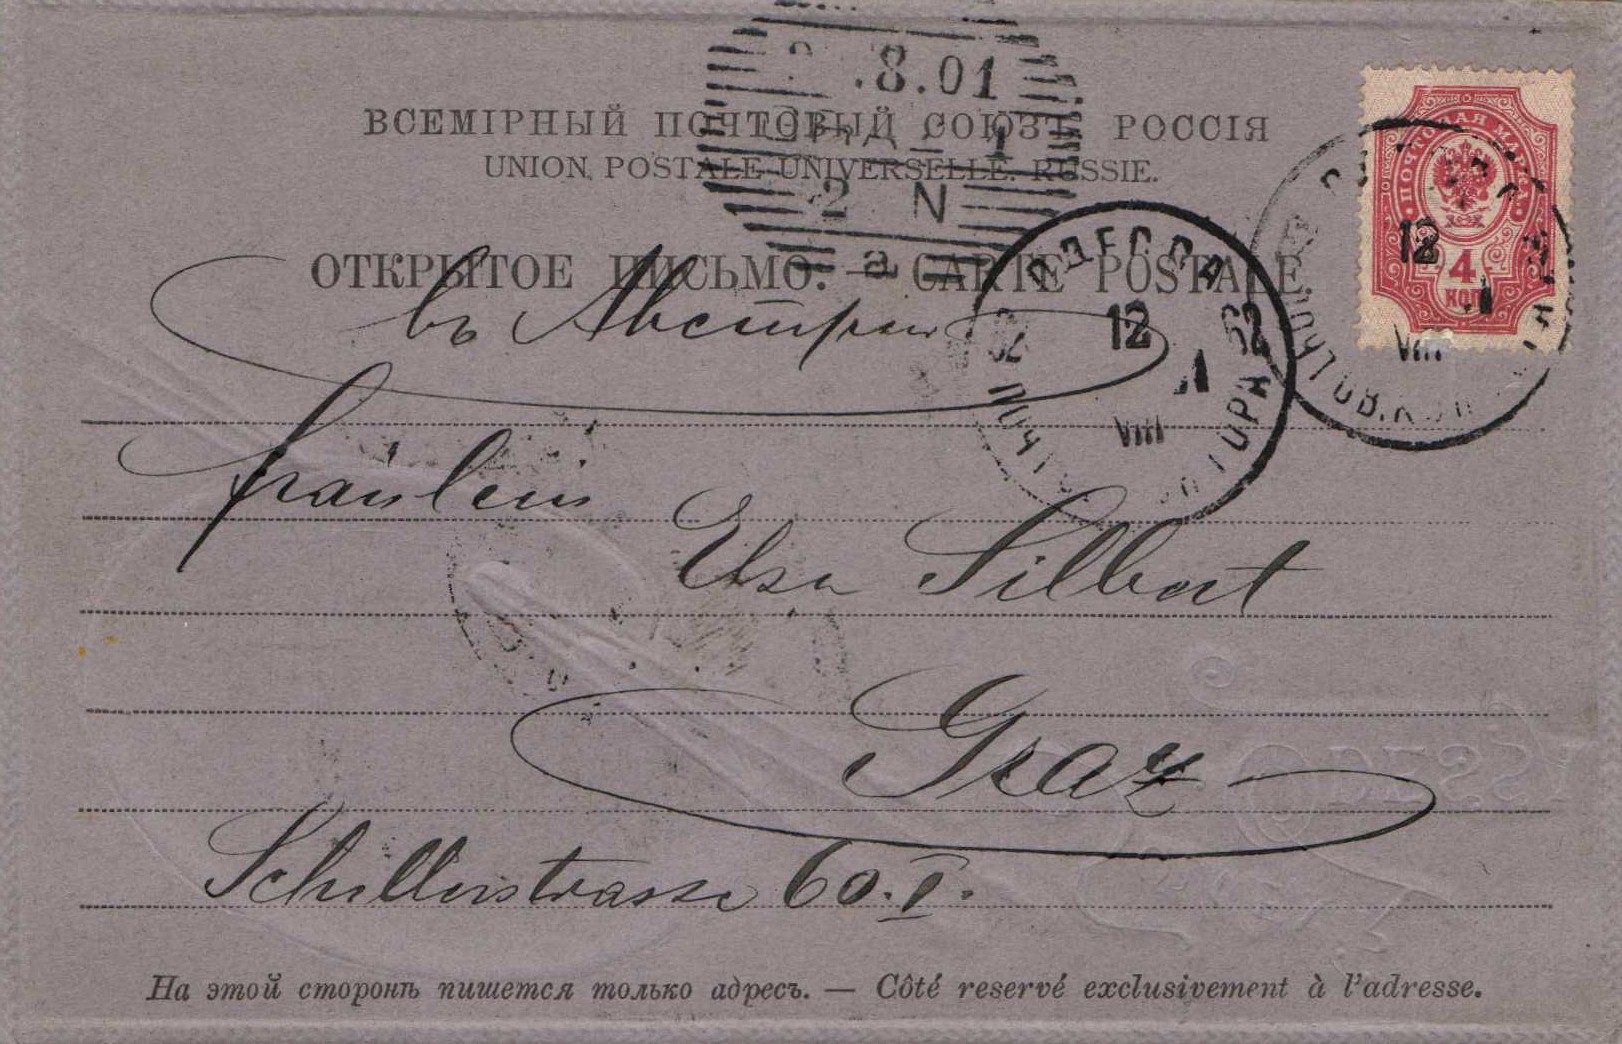 .8.01
ВСЕМІРНЫЙ ПОЧТОВЫЙ СОЮЗЪ. РОССІЯ
UNION POSTALE UNIVERSELLE. RUSSIE.
2 N
a
ОТКРЫТОЕ ПИСЬМО. — CARTE POSTALE.
ПОЧТОВАЯ МАРКА
4
КОП
12
VIII
ОДЕССА
12
1
VIII
въ Австрию
Fräulein
Elsa Silbert
Graz
Schillerstrasse 60. I.
На этой сторонѣ пишется только адресъ. — Côté reservé exclusivement à l'adresse.